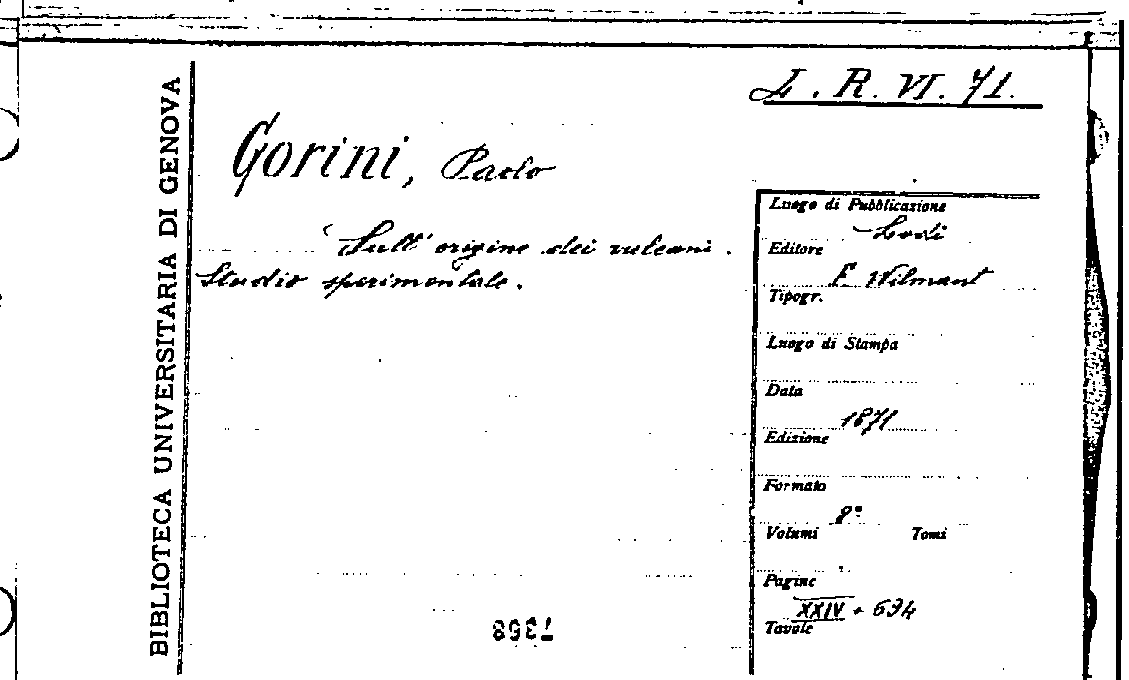 BIBLIOTECA UNIVERSITARIA DI GENOVA
L. R. VI. 71.
Gorini, Paolo
Sull' origine dei vulcani.
Studio sperimentale.
Luogo di Pubblicazione
Lodi
Editore
E. Wilmant
Tipogr.
Luogo di Stampa
Data
1871
Edizione
Formato
8°
Volumi Tomi
Pagine
XXIV +
Tavole
7368